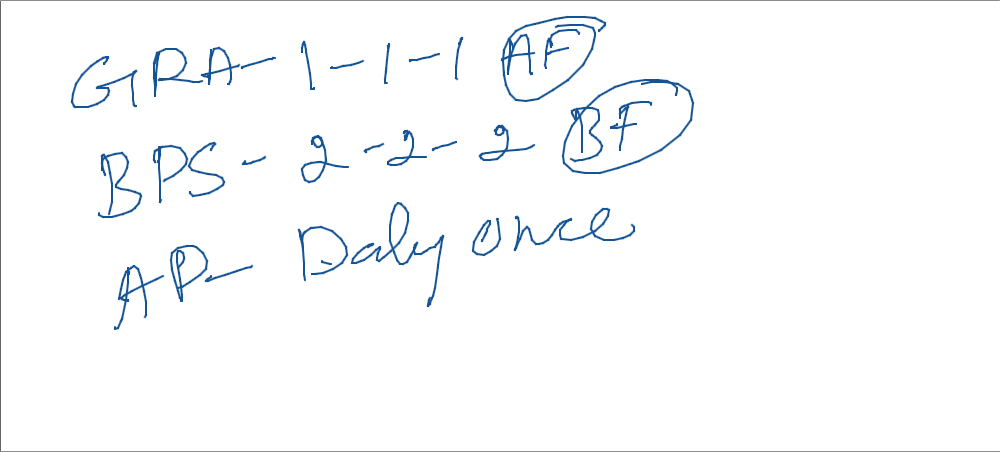 GRA- 1-1-1 AF
BPS- 2-2-2 BF
AP- Daly once